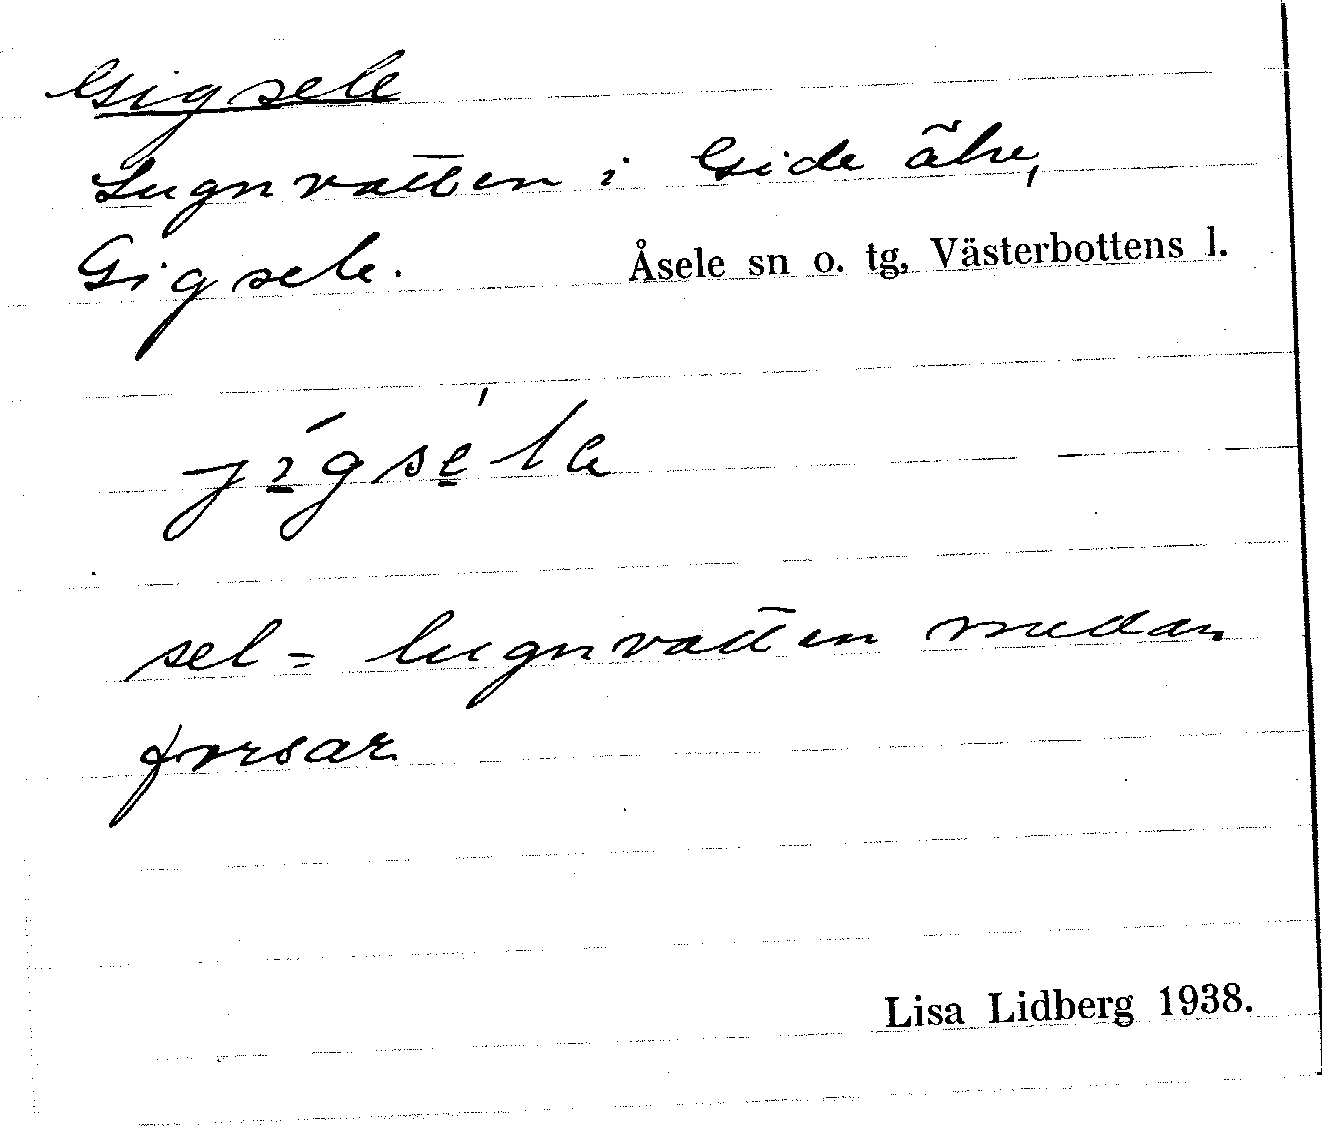 Gigsele
Lugnvatten i Gide älv,
Gigsele. Åsele sn o. tg, Västerbottens l.
jígsé̱la
sel = lugnvatten medan
forsar
Lisa Lidberg 1938.